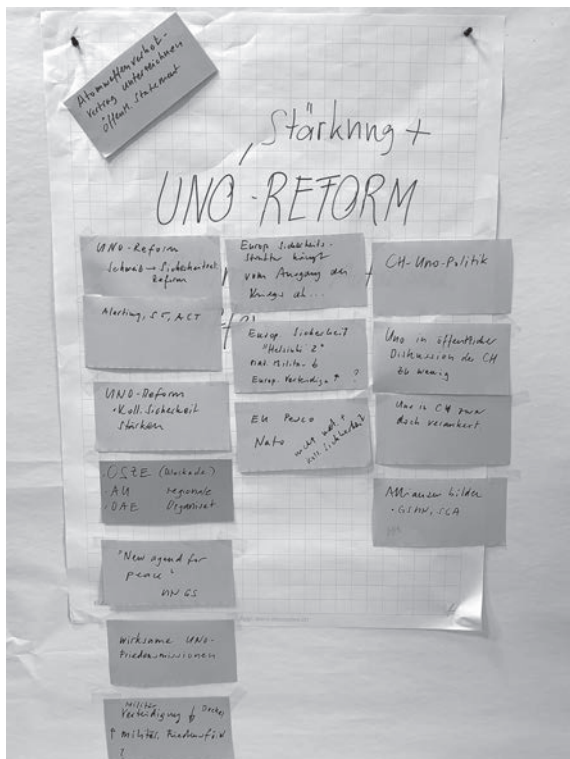 Atomwaffenverbot-
vertrag unterzeichnen
öffentl. Statement
, Stärkung +
UNO-REFORM
UNO-Reform
Schweiz → Sicherheitsrat
Reform
Alerting, S5, ACT
UNO-Reform
• Koll. Sicherheit
stärken
• OSZE (Blockade)
• AU regionale
• OAE Organisat
"New agend for
peace"
UN GS
wirksame UNO-
Friedensmissionen
Militär
Verteidigung
↑ militär.
?
Europ. Sicherheits-
struktur hängt
vom Ausgang des
Krieges ab...
Europ. Sicherheit
"Helsinki 2"
Europ. Verteidig ?
EU Pesco
Nato
Koll. Sicherheit
CH-Uno-Politik
Uno in öffentlicher
Diskussion der CH
zu wenig
Uno in CH zwar
doch verankert
Allianzen bilden
• GSMN, SGA